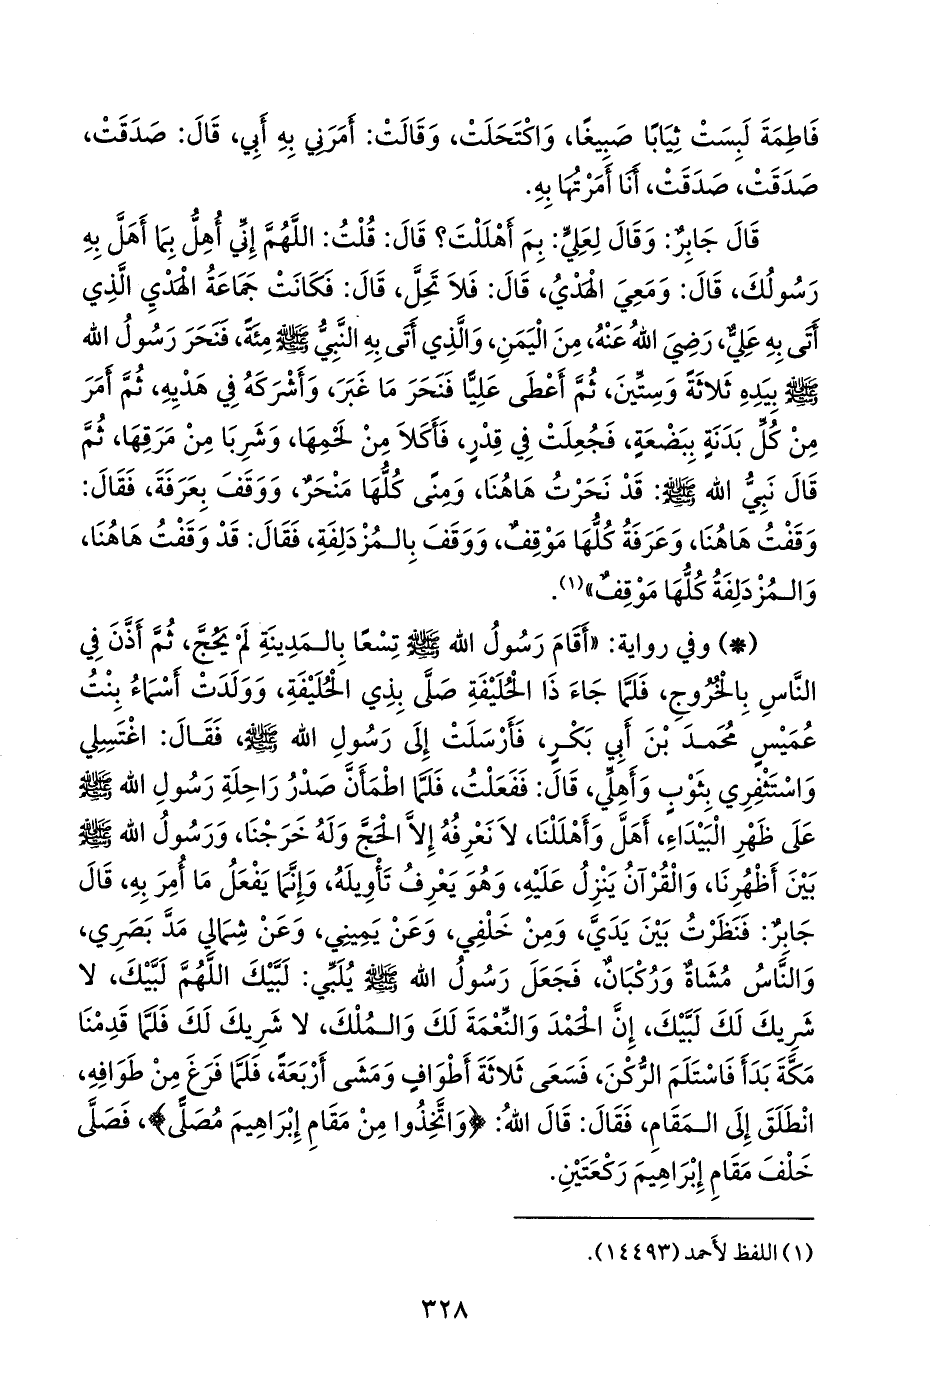 فَاطِمَةَ لَبِسَتْ ثِيَابًا صَبِيغًا، وَاكْتَحَلَتْ، وَقَالَتْ: أَمَرَنِي بِهِ أَبِي، قَالَ: صَدَقَتْ،
صَدَقَتْ، صَدَقَتْ، أَنَا أَمَرْتُهَا بِهِ.
قَالَ جَابِرٌ: وَقَالَ لِعَلِيٍّ: بِمَ أَهْلَلْتَ؟ قَالَ: قُلْتُ: اللَّهُمَّ إِنِّي أُهِلُّ بِمَا أَهَلَّ بِهِ
رَسُولُكَ، قَالَ: وَمَعِيَ الْهَدْيُ، قَالَ: فَلاَ تَحِلَّ، قَالَ: فَكَانَتْ جَمَاعَةُ الْهَدْيِ الَّذِي
أَتَى بِهِ عَلِيٌّ، رَضِيَ اللهُ عَنْهُ، مِنَ الْيَمَنِ، وَالَّذِي أَتَى بِهِ النَّبِيُّ ﷺ مِئَةً، فَنَحَرَ رَسُولُ الله
ﷺ بِيَدِهِ ثَلاَثَةً وَسِتِّينَ، ثُمَّ أَعْطَى عَلِيًّا فَنَحَرَ مَا غَبَرَ، وَأَشْرَكَهُ فِي هَدْيِهِ، ثُمَّ أَمَرَ
مِنْ كُلِّ بَدَنَةٍ بِبَضْعَةٍ، فَجُعِلَتْ فِي قِدْرٍ، فَأَكَلاَ مِنْ لَحْمِهَا، وَشَرِبَا مِنْ مَرَقِهَا، ثُمَّ
قَالَ نَبِيُّ الله ﷺ: قَدْ نَحَرْتُ هَاهُنَا، وَمِنًى كُلُّهَا مَنْحَرٌ، وَوَقَفَ بِعَرَفَةَ، فَقَالَ:
وَقَفْتُ هَاهُنَا، وَعَرَفَةُ كُلُّهَا مَوْقِفٌ، وَوَقَفَ بِالـمُزْدَلِفَةِ، فَقَالَ: قَدْ وَقَفْتُ هَاهُنَا،
وَالـمُزْدَلِفَةُ كُلُّهَا مَوْقِفٌ»(١).
(*) وفي رواية: «أَقَامَ رَسُولُ الله ﷺ تِسْعًا بِالـمَدِينَةِ لَمْ يَحُجَّ، ثُمَّ أَذَّنَ فِي
النَّاسِ بِالْخُرُوجِ، فَلَمَّا جَاءَ ذَا الْحُلَيْفَةِ صَلَّى بِذِي الْحُلَيْفَةِ، وَوَلَدَتْ أَسْمَاءُ بِنْتُ
عُمَيْسٍ مُحَمدَ بْنَ أَبِي بَكْرٍ، فَأَرْسَلَتْ إِلَى رَسُولِ الله ﷺ، فَقَالَ: اغْتَسِلِي
وَاسْتَثْفِرِي بِثَوْبٍ وَأَهِلِّي، قَالَ: فَفَعَلْتُ، فَلَمَّا اطْمَأَنَّ صَدْرُ رَاحِلَةِ رَسُولِ الله ﷺ
عَلَى ظَهْرِ الْبَيْدَاءِ، أَهَلَّ وَأَهْلَلْنَا، لاَ نَعْرِفُهُ إِلاَّ الْحَجَّ وَلَهُ خَرَجْنَا، وَرَسُولُ الله ﷺ
بَيْنَ أَظْهُرِنَا، وَالْقُرْآنُ يَنْزِلُ عَلَيْهِ، وَهُوَ يَعْرِفُ تَأْوِيلَهُ، وَإِنَّمَا يَفْعَلُ مَا أُمِرَ بِهِ، قَالَ
جَابِرٌ: فَنَظَرْتُ بَيْنَ يَدَيَّ، وَمِنْ خَلْفِي، وَعَنْ يَمِينِي، وَعَنْ شِمَالِي مَدَّ بَصَرِي،
وَالنَّاسُ مُشَاةٌ وَرُكْبَانٌ، فَجَعَلَ رَسُولُ الله ﷺ يُلَبِّي: لَبَّيْكَ اللَّهُمَّ لَبَّيْكَ، لا
شَرِيكَ لَكَ لَبَّيْكَ، إِنَّ الْحَمْدَ وَالنِّعْمَةَ لَكَ وَالـمُلْكَ، لا شَرِيكَ لَكَ فَلَمَّا قَدِمْنَا
مَكَّةَ بَدَأَ فَاسْتَلَمَ الرُّكْنَ، فَسَعَى ثَلاَثَةَ أَطْوَافٍ وَمَشَى أَرْبَعَةً، فَلَمَّا فَرَغَ مِنْ طَوَافِهِ،
انْطَلَقَ إِلَى الـمَقَامِ، فَقَالَ: قَالَ اللهُ: ﴿وَاتَّخِذُوا مِنْ مَقَامِ إِبْرَاهِيمَ مُصَلًّى﴾، فَصَلَّى
خَلْفَ مَقَامِ إِبْرَاهِيمَ رَكْعَتَيْنِ.
(١) اللفظ لأَحمد (١٤٤٩٣).
٣٢٨